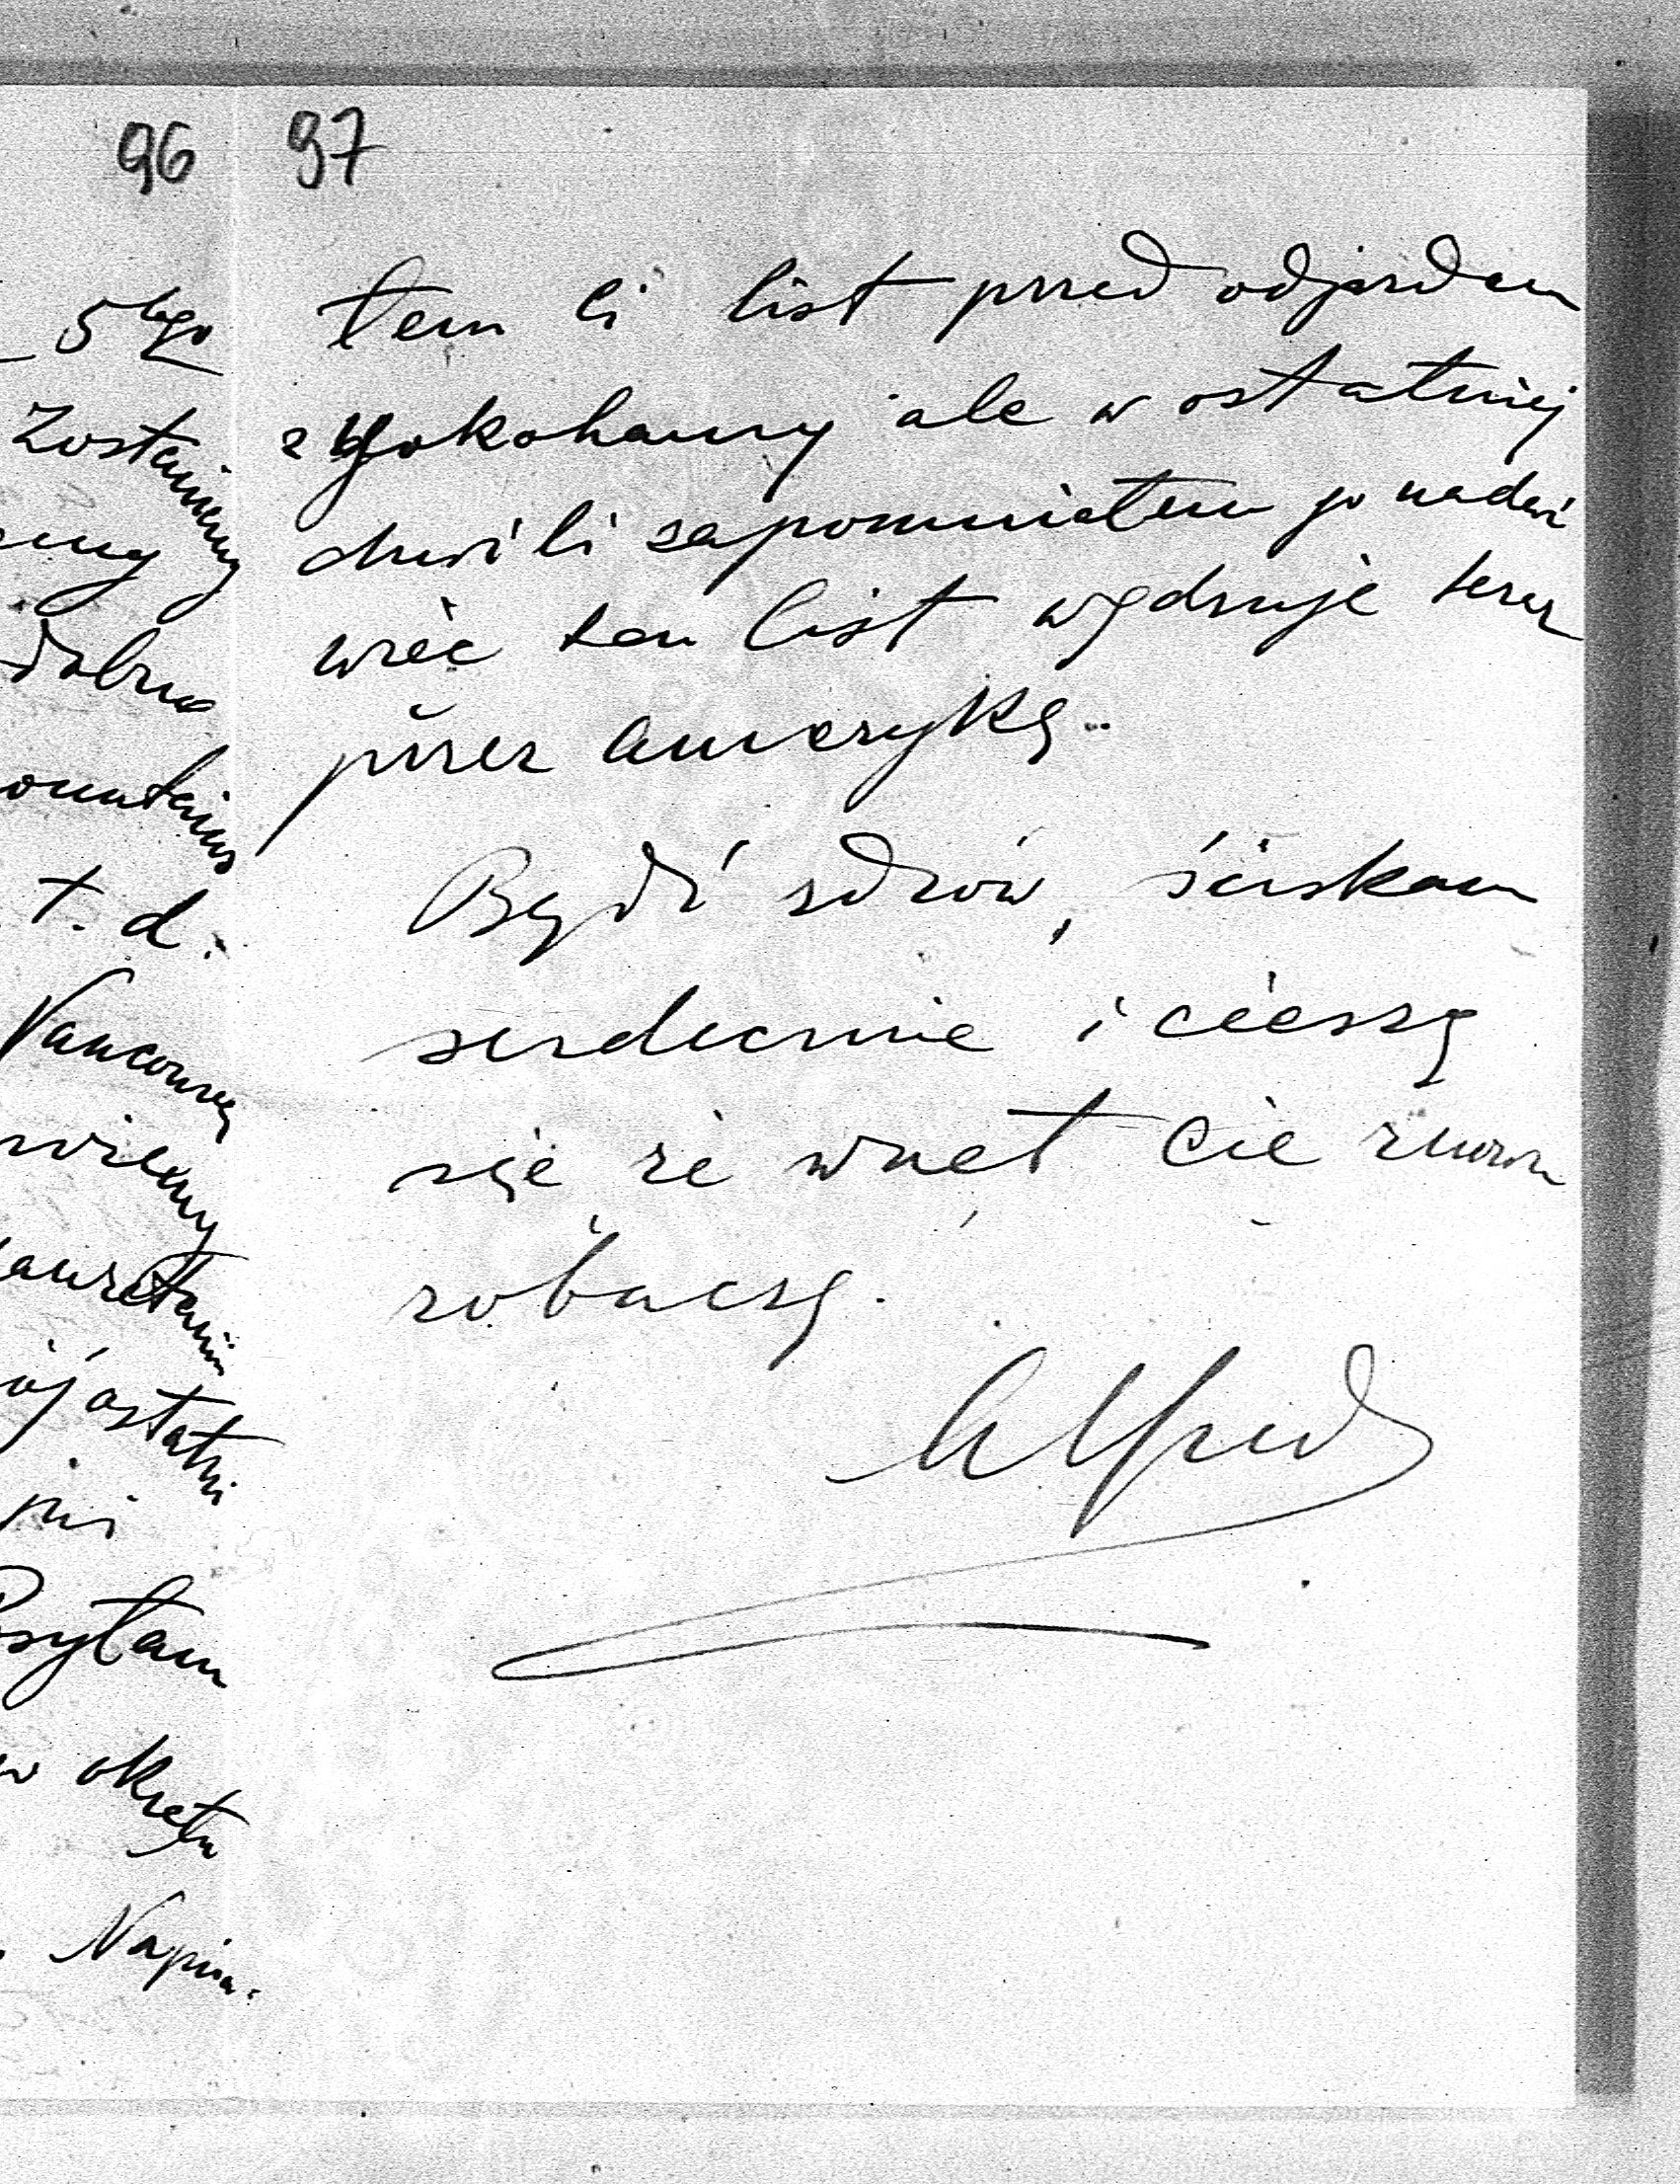 96 97
5tego
Zostaniemy
dobrze
t. d.
Vancouver
ostatni
okrętu
Napisa-
tem Ci list przed odjazdem
z Yokohamy ale w ostatniej
chwili zapomniałem go nadać
więc ten list wędruje teraz
przez Amerykę.
Bądź zdrów, ściskam
serdecznie i cieszę
się że wnet Cię znowu
zobaczę.
Alfred